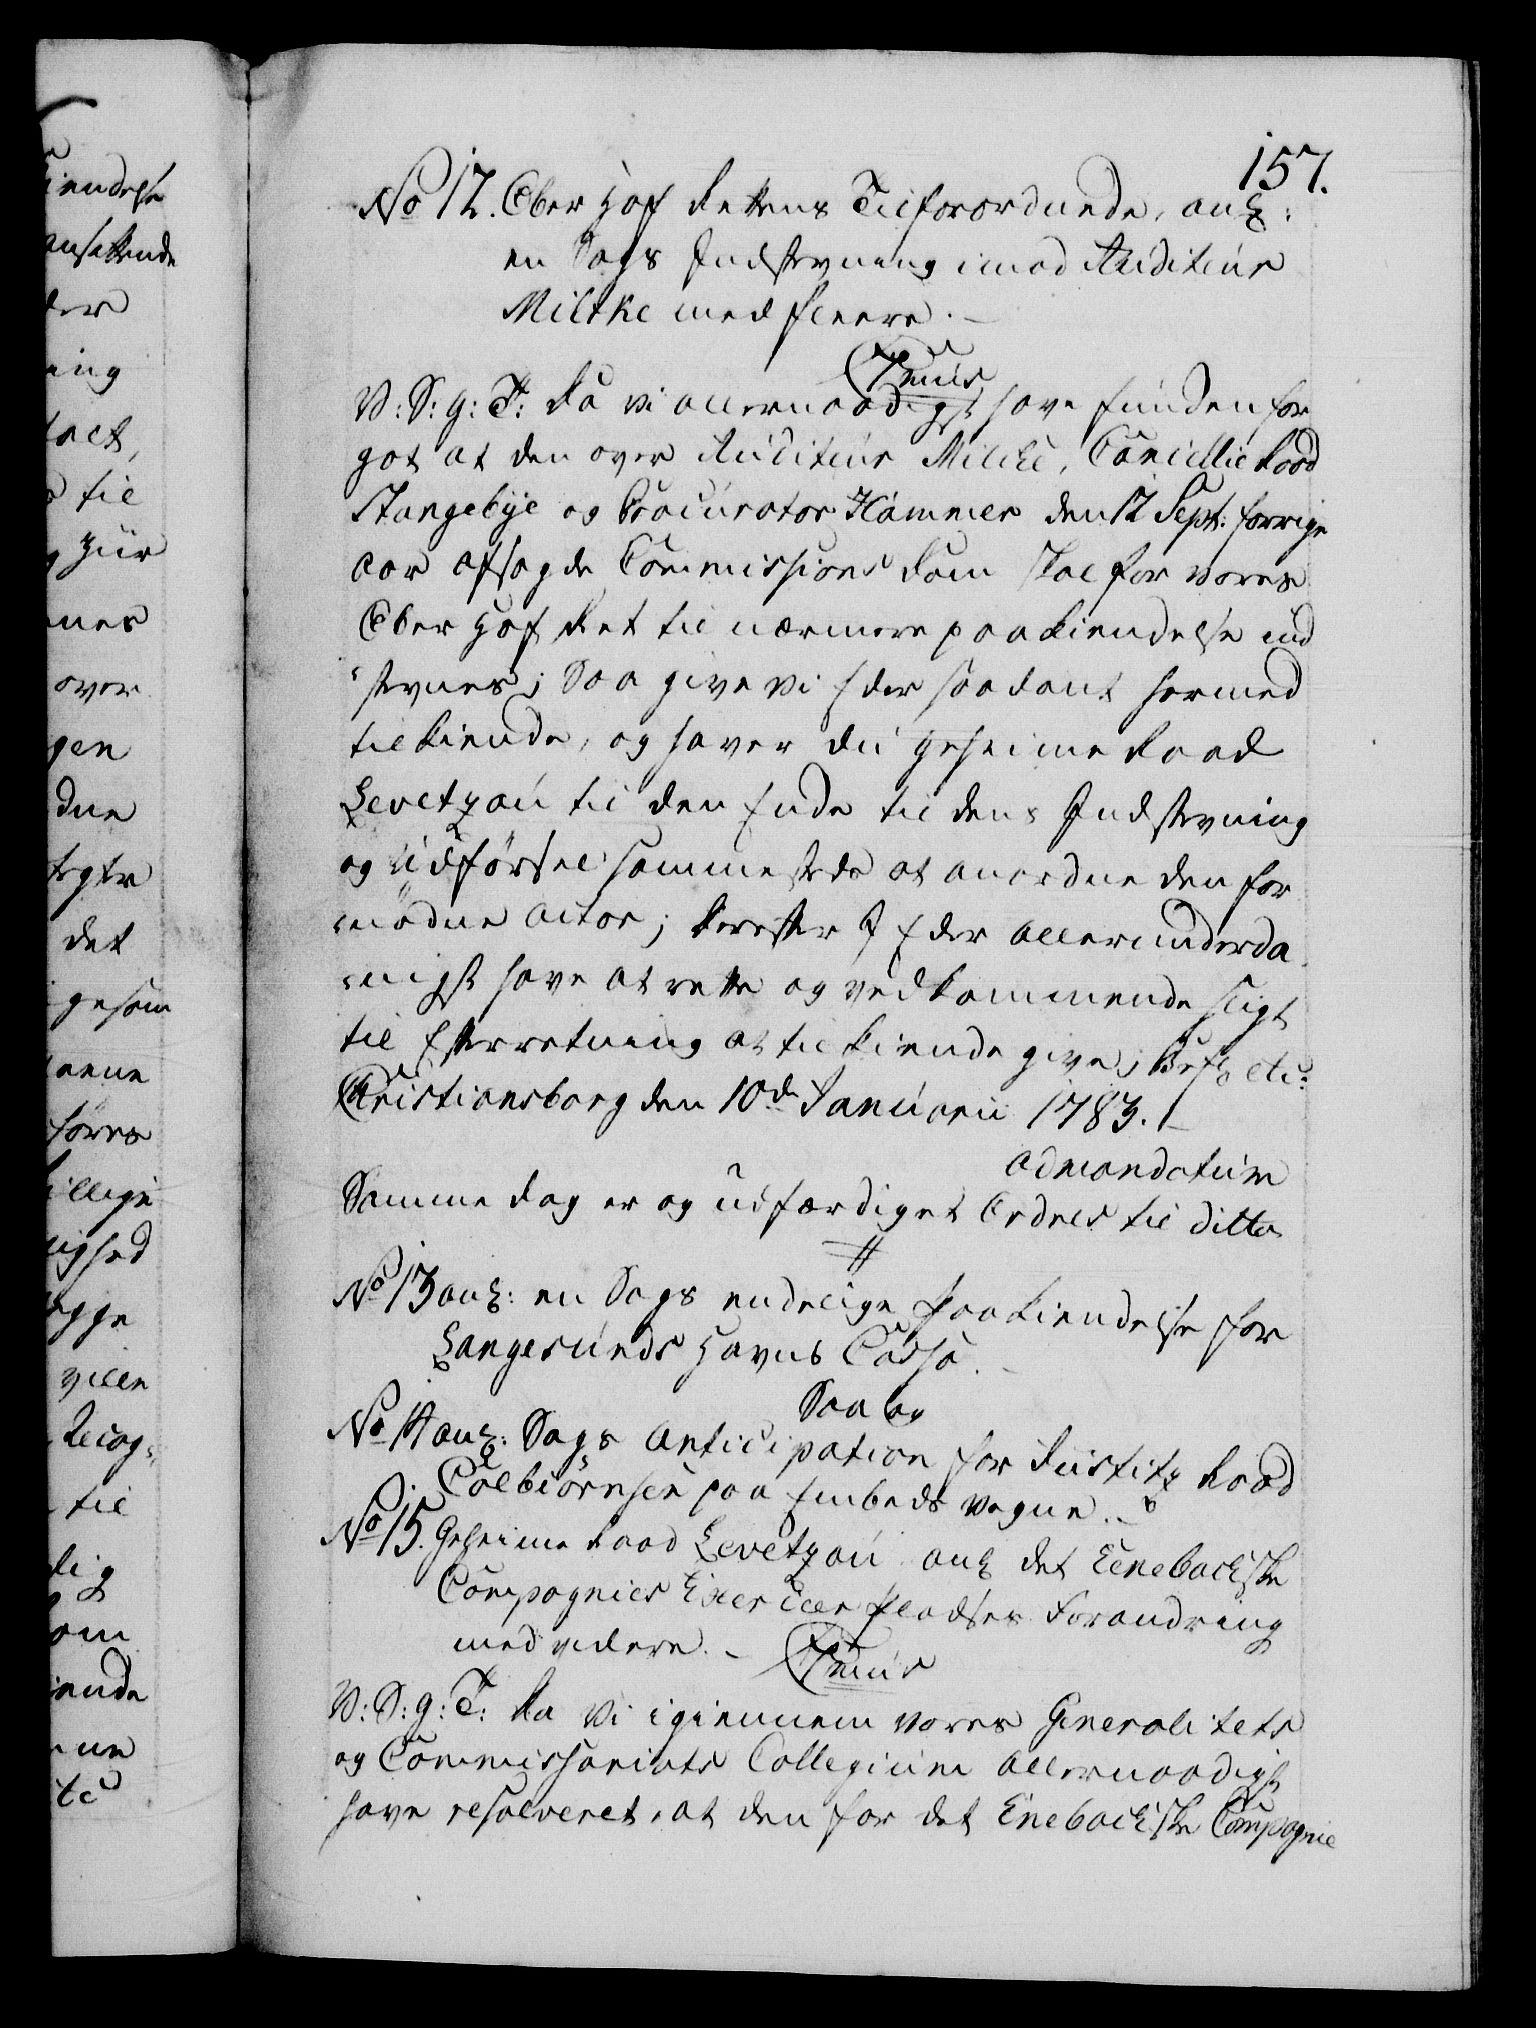 157.
No 12. Ober Hof Rettens Tilforordnede, ang:
en Sags Indstevning imod Auditeur
Miltke med fleere.
Cancus
V: S: g: T: Da Vi allernaadigst have funden for
got at den over Auditeur Miltke, Cancellie Raad
Stangebye og Procurator Hammer den 12 Sept: forrige
aar afsagde Commissions Dom skal for vores
Ober Hof Ret til nærmere paakiendelse ind
stevnes; Saa give vi Eder saadant hermed
tilkiende, og haver du Geheime Raad
Levetzau til den Ende til dens Indstevning
og Udførsel sammestede at anordne den for
nødne Actor; Derefter I Eder allerunderda
nigst have at rette og vedkommende sligt
til Efterretning at tilkiende give; Befo etc:
Christiansborg den 10de Januarii 1783.
ad mandatum
Samme dag er og udfærdiget Ordres til ditto
No 13 ang: en Sags endelige Paakiendelse for
Langesunds Havns Cassa.
Saa og
No 14 ang: Sags Anticipation for Justitz Raad
Colbiørnsen paa Embeds vegne.
No 15. Geheime Raad Levetzau ang det Eenebachske
Compagnies Exercer Pladses Forandring
med videre.
V: S: g: T: Da Vi igiennem vores Generalitets
og Commissariats Collegium allernaadigst
have resolveret, at den for det Enebachske Compagnie